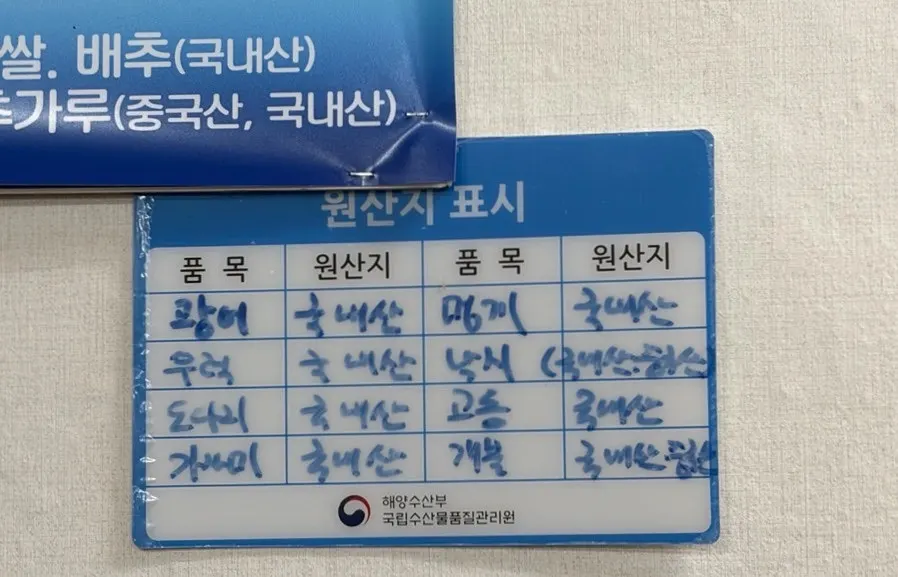 쌀. 배추(국내산)
추가루(중국산, 국내산)
원산지 표시
품 목 원산지 품 목 원산지
광어 국내산 멍게 국내산
우럭 국내산 낙지 (국내산.
도다리 국내산 고등 국내산
가자미 국내산 개불 국내산
해양수산부
국립수산물품질관리원